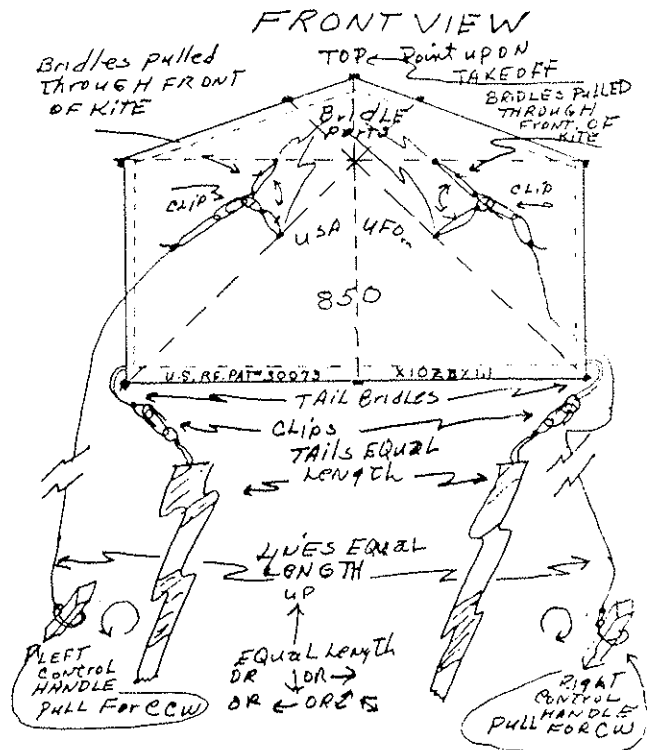 FRONT VIEW
Bridles Pulled
THROUGH FRONT
OF KITE
TOP ← Point UP ON
TAKEOFF
BRIDLES PULLED
THROUGH
FRONT OF
KITE
BRIDLE
Parts
CLIPS
CLIP
USA UFO
850
U.S.RE.PAT# 30073
TAIL Bridles
CLIPS
TAILS EQUAL
LENGTH
LINES EQUAL
LENGTH
UP
EQUAL Length
OR ↓ OR →
OR ← OR
LEFT
CONTROL
HANDLE
PULL FOR CCW
Right
CONTROL
HANDLE
PULL FOR CW